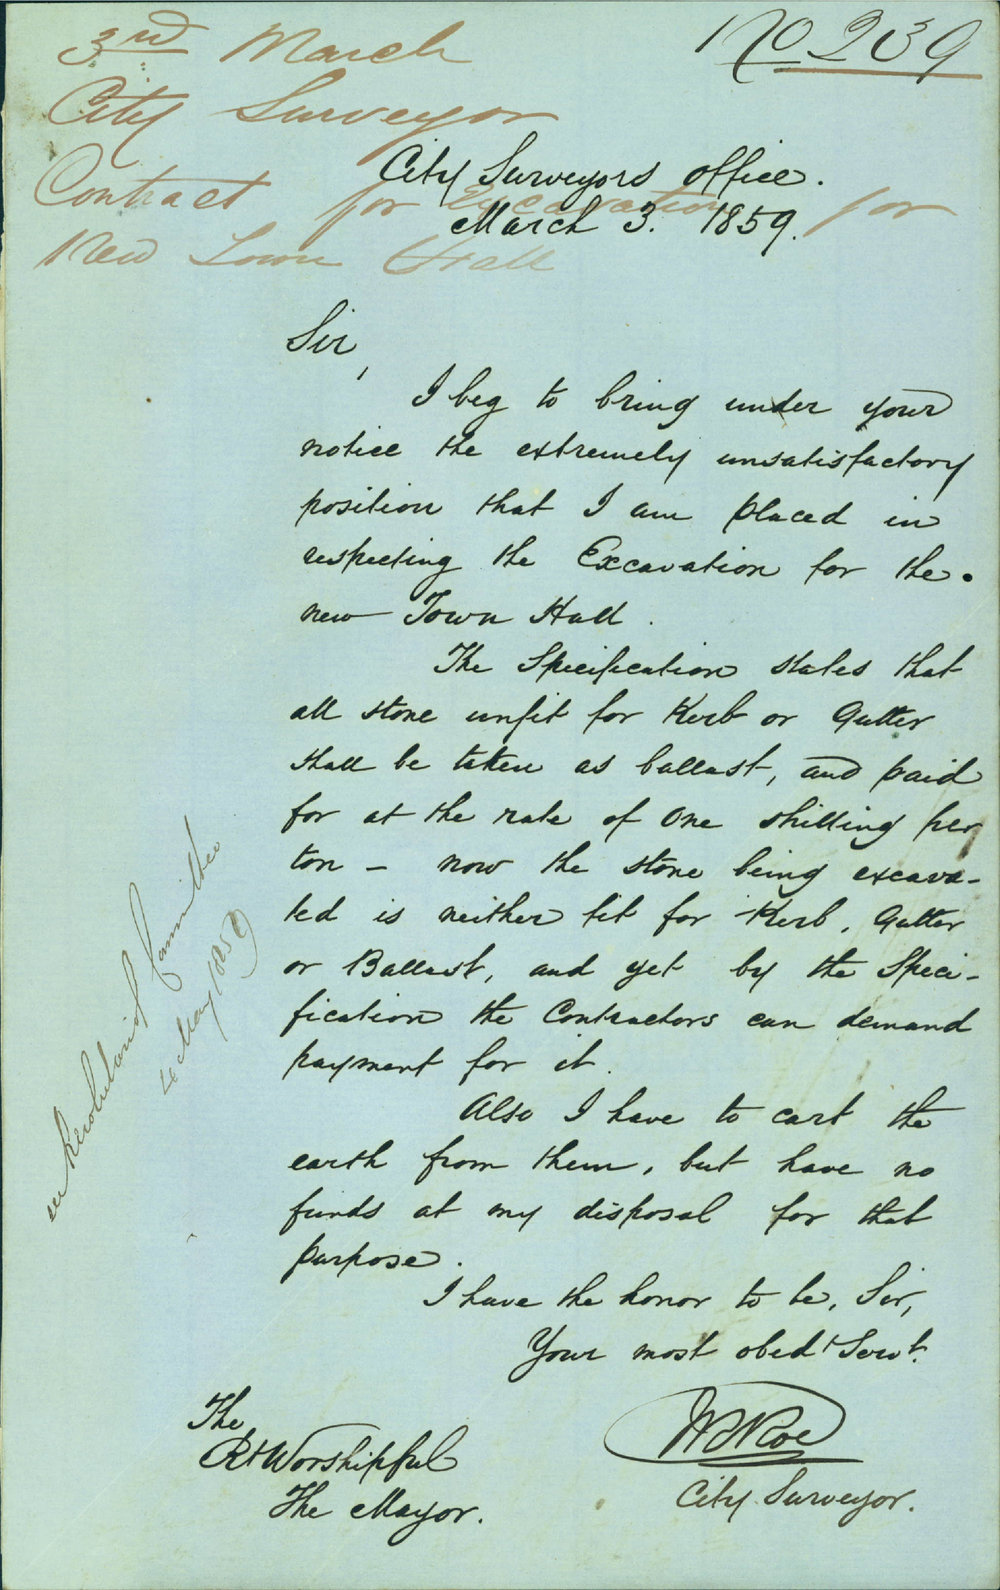 No 239
3rd March
City Surveyor
Contract for Excavation for
New Town Hall
City Surveyors office.
March 3. 1859.
Sir,
I beg to bring under your
notice the extremely unsatisfactory
position that I am placed in
respecting the Excavation for the
new Town Hall.
The Specification states that
all stone unfit for Kerb or Gutter
shall be taken as ballast, and paid
for at the rate of One shilling per
ton – now the stone being excava-
ted is neither fit for Kerb, Gutter
or Ballast, and yet by the Speci-
fication the Contractors can demand
payment for it.
Also I have to cart the
earth from them, but have no
funds at my disposal for that
purpose.
I have the honor to be, Sir,
Your most obedt Servt.
City Surveyor.
The
Rt Worshipful
The Mayor.
Committee
4 May 1859